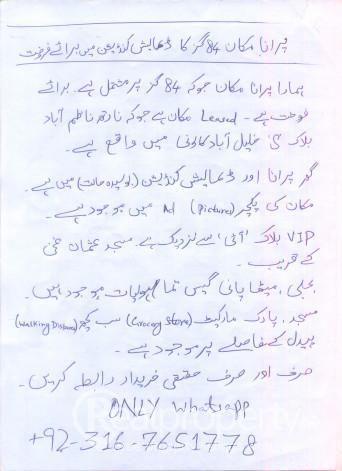 پرانا مکان 84 گز کا ڈھمالیش کنڈیشن میں برائے فروخت
ہمارا پرانا مکان جوکہ 84 گز پر مشتمل ہے۔ برائے
فروخت ہے۔ Leased مکان ہے جوکہ نارتھ ناظم آباد
بلاک خلیل آباد کالونی میں واقع ہے۔
گھر پرانا اور ڈھمالیش کنڈیشن (بوسیدہ حالت) میں ہے۔
مکان کی پکچر (Picture) Ad میں موجود ہے۔
VIP بلاک 'آئی' سے نزدیک ہے مسجد عثمان غنی
کے قریب۔
بجلی، میٹھا پانی گیس تمام سہولیات موجود ہیں۔
مسجد، پارک مارکیٹ (Grocery Store) سب کچھ (Walking Distance)
پیدل کے فاصلے پر موجود ہے۔
صرف اور صرف حقیقی خریدار رابطہ کریں۔
ONLY Whatsapp
+92-316-7651778
Realproperty